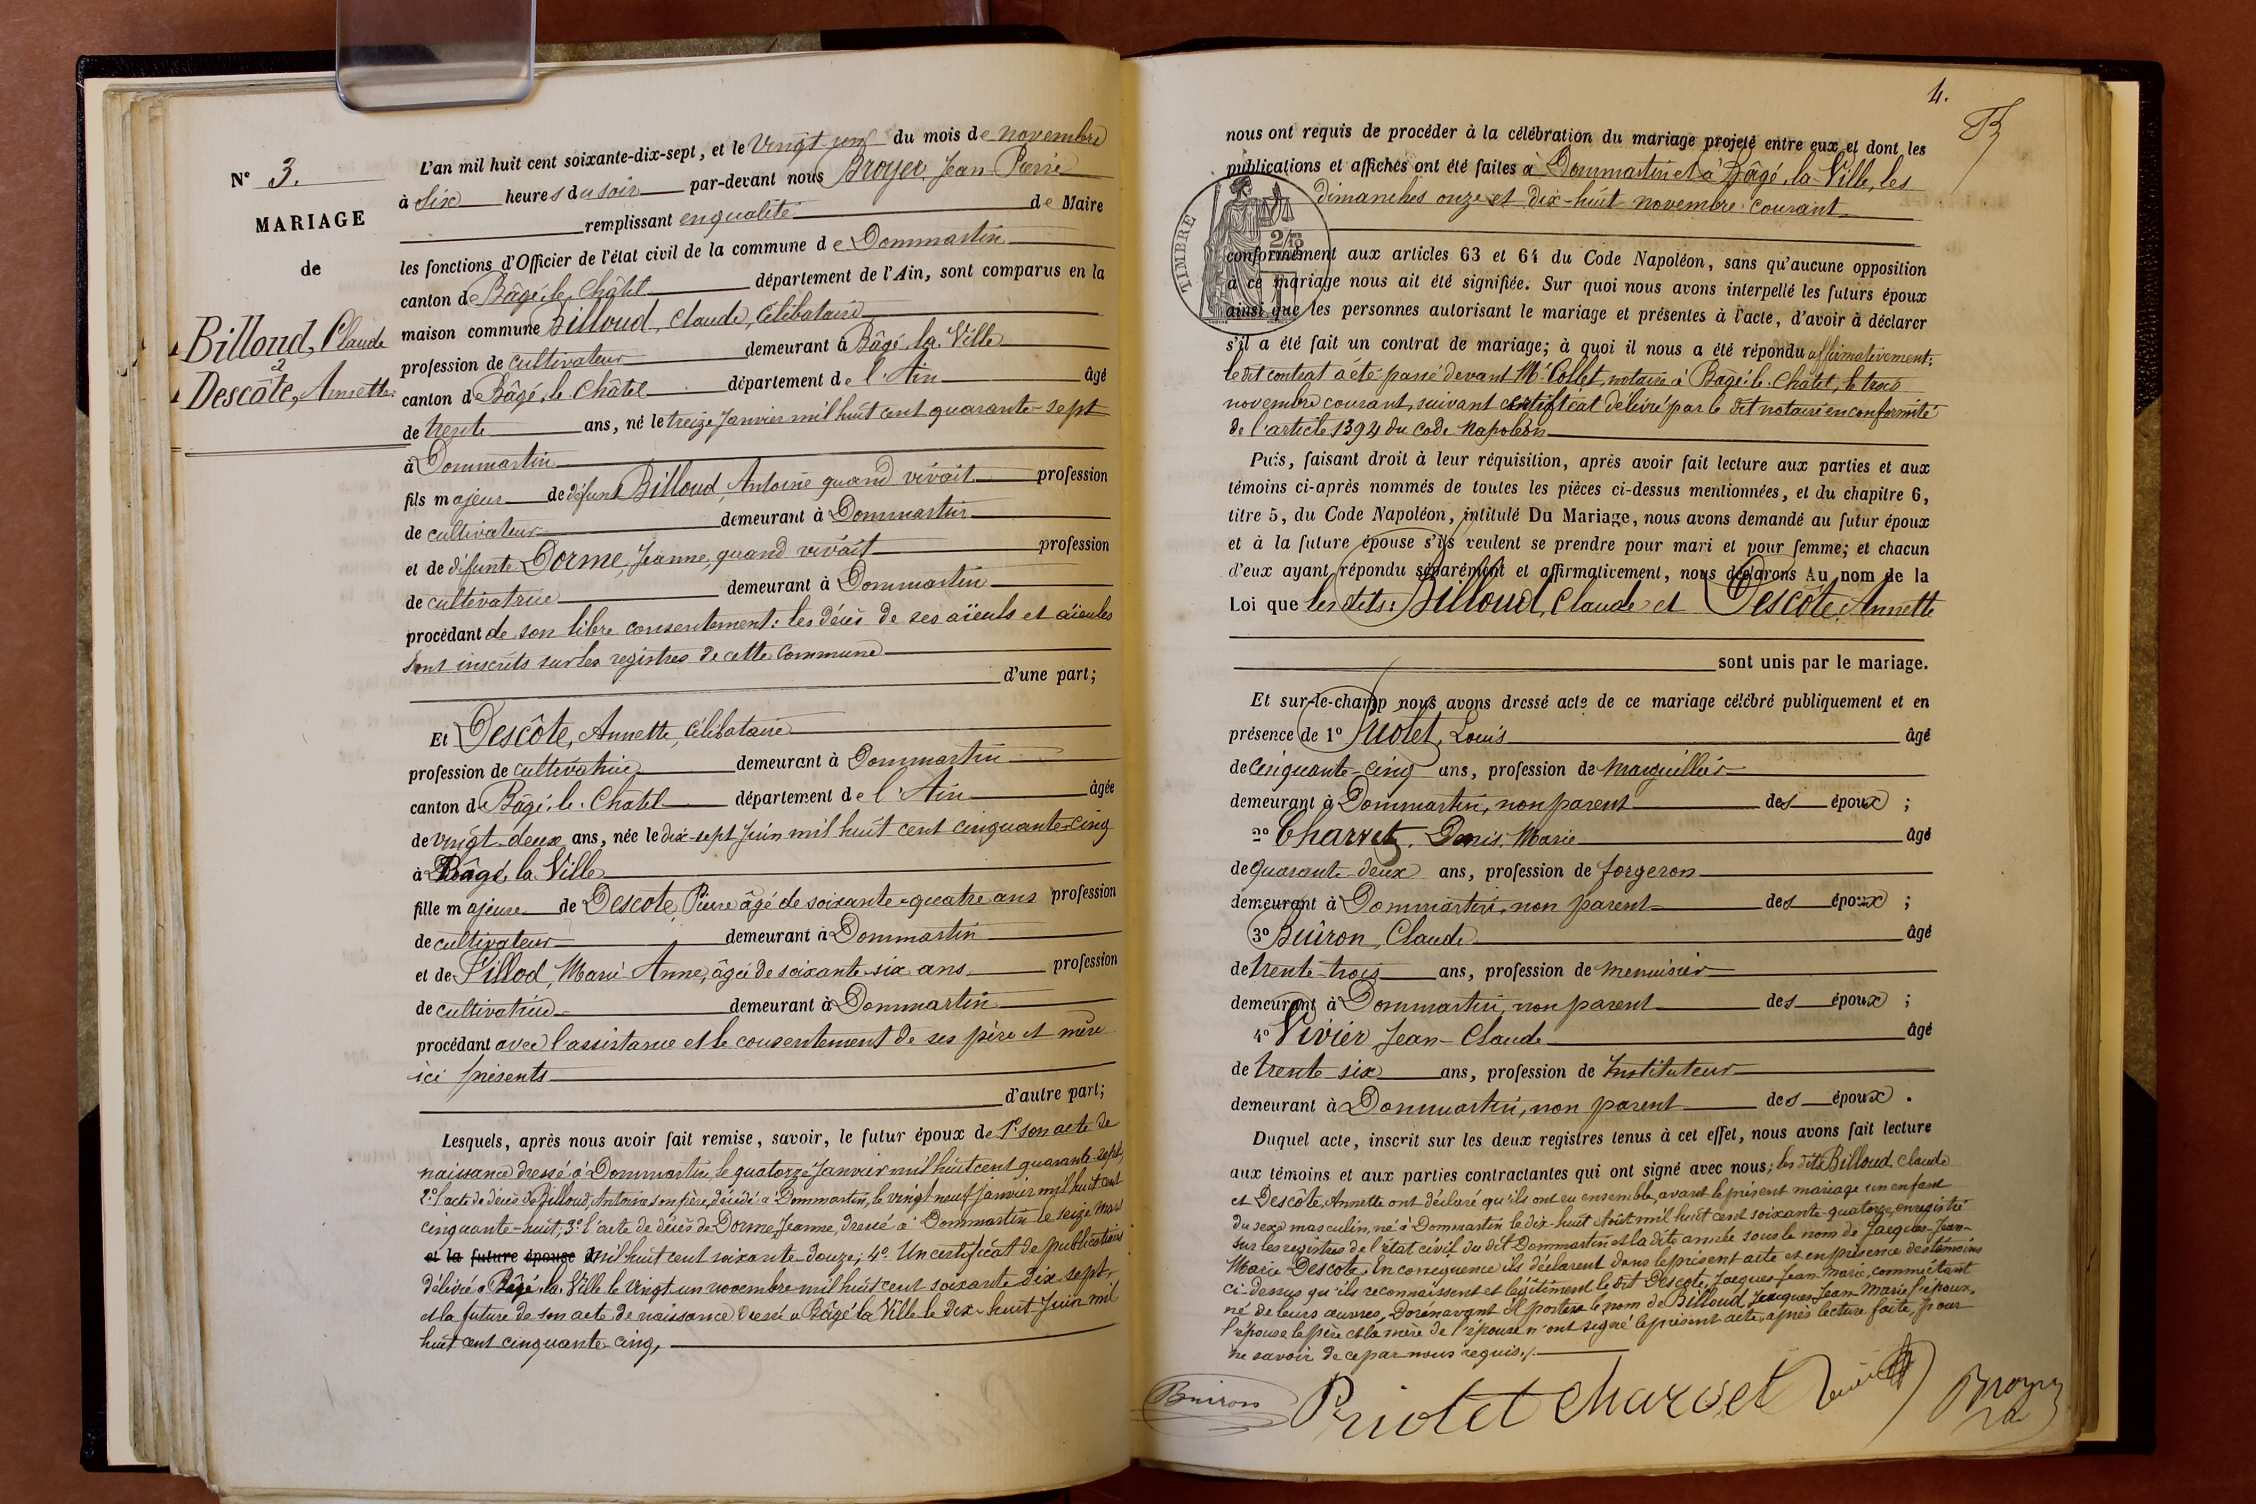 N° 3.
MARIAGE
de
Billoud, Claude
à
Descôte, Annette.
L'an mil huit cent soixante-dix-sept, et le vingt-un du mois de novembre
à six heures du soir par-devant nous Broyer, Jean Pierre
remplissant en qualité de Maire
les fonctions d'Officier de l'état civil de la commune de Dommartin
canton de Bâgé-le-Châtel département de l'Ain, sont comparus en la
maison commune Billoud, Claude, célibataire
profession de cultivateur demeurant à Bâgé-la-Ville
canton de Bâgé-le-Châtel département de l'Ain âgé
de trente ans, né le treize Janvier mil huit cent quarante-sept
à Dommartin
fils majeur de défunt Billoud, Antoine quand vivait profession
de cultivateur demeurant à Dommartin
et de défunte Dorme, Jeanne, quand vivait profession
de cultivatrice demeurant à Dommartin
procédant de son libre consentement: les décès de ses aïeuls et aïeules
sont inscrits sur les registres de cette commune
d'une part;
Et Descôte, Annette, célibataire
profession de cultivatrice demeurant à Dommartin
canton de Bâgé-le-Châtel département de l'Ain âgée
de vingt-deux ans, née le dix-sept Juin mil huit cent cinquante-cinq
à Bâgé-la-Ville
fille majeure de Descote, Pierre âgé de soixante-quatre ans profession
de cultivateur demeurant à Dommartin
et de Pillod, Marie Anne, âgée de soixante-six ans profession
de cultivatrice demeurant à Dommartin
procédant avec l'assistance et le consentement de ses père et mère
ici présents
d'autre part;
Lesquels, après nous avoir fait remise, savoir, le futur époux de 1° son acte de
naissance dressé à Dommartin le quatorze Janvier mil huit cent quarante-sept;
2° l'acte de décès de Billoud, Antoine son père, décédé à Dommartin, le vingt neuf janvier mil huit cent
cinquante-huit; 3° l'acte de décès de Dorme, Jeanne, dressé à Dommartin le seize mars
et la future épouse mil huit cent soixante-douze; 4° Un certificat de publications
délivré à Bâgé-la-Ville le vingt un novembre mil huit cent soixante dix sept
et la future de son acte de naissance dressé à Bâgé la Ville le dix-huit Juin mil
huit cent cinquante-cinq,
4.
nous ont requis de procéder à la célébration du mariage projeté entre eux et dont les
publications et affiches ont été faites à Dommartin et à Bâgé-la-Ville, les
dimanches onze et dix-huit novembre courant
TIMBRE
conformément aux articles 63 et 64 du Code Napoléon, sans qu'aucune opposition
à ce mariage nous ait été signifiée. Sur quoi nous avons interpellé les futurs époux
ainsi que les personnes autorisant le mariage et présentes à l'acte, d'avoir à déclarer
s'il a été fait un contrat de mariage; à quoi il nous a été répondu affirmativement:
le dit contrat a été passé devant Mr Collet, notaire à Bâgé-le-Châtel, le trois
novembre courant, suivant certificat délivré par le dit notaire en conformité
de l'article 1394 du code Napoléon
Puis, faisant droit à leur réquisition, après avoir fait lecture aux parties et aux
témoins ci-après nommés de toutes les pièces ci-dessus mentionnées, et du chapitre 6,
titre 5, du Code Napoléon, intitulé Du Mariage, nous avons demandé au futur époux
et à la future épouse s'ils veulent se prendre pour mari et pour femme; et chacun
d'eux ayant répondu séparément et affirmativement, nous déclarons Au nom de la
Loi que les dits: Billoud, Claude et Descôte, Annette
sont unis par le mariage.
Et sur-le-champ nous avons dressé acte de ce mariage célébré publiquement et en
présence de 1° Priolet, Louis âgé
de cinquante-cinq ans, profession de marguillier
demeurant à Dommartin, non parent des époux;
2° Charvet, Denis, Marie âgé
de quarante-deux ans, profession de forgeron
demeurant à Dommartin, non parent des époux;
3° Buiron, Claude âgé
de trente-trois ans, profession de menuisier
demeurant à Dommartin, non parent des époux;
4° Vivier Jean-Claude âgé
de trente-six ans, profession de Instituteur
demeurant à Dommartin, non parent des époux.
Duquel acte, inscrit sur les deux registres tenus à cet effet, nous avons fait lecture
aux témoins et aux parties contractantes qui ont signé avec nous; les dits Billoud Claude
et Descôte, Annette ont déclaré qu'ils ont eu ensemble, avant le présent mariage un enfant
du sexe masculin, né à Dommartin le dix-huit Août mil huit cent soixante-quatorze, enregistré
sur les registres de l'état civil du dit Dommartin et la dite année sous le nom de Jacques-Jean-
Marie Descote. En conséquence ils déclarent dans le présent acte et en présence des témoins
ci-dessus qu'ils reconnaissent et légitiment le dit Descote, Jacques Jean Marie, comme étant
né de leurs œuvres, Dorénavant il portera le nom de Billoud, Jacques Jean Marie l'époux,
l'épouse le père et la mère de l'épouse n'ont signé le présent acte, après lecture faite, pour
ne savoir de ce par nous requis./.
Buiron Priolet Charvet Vivier Broyer